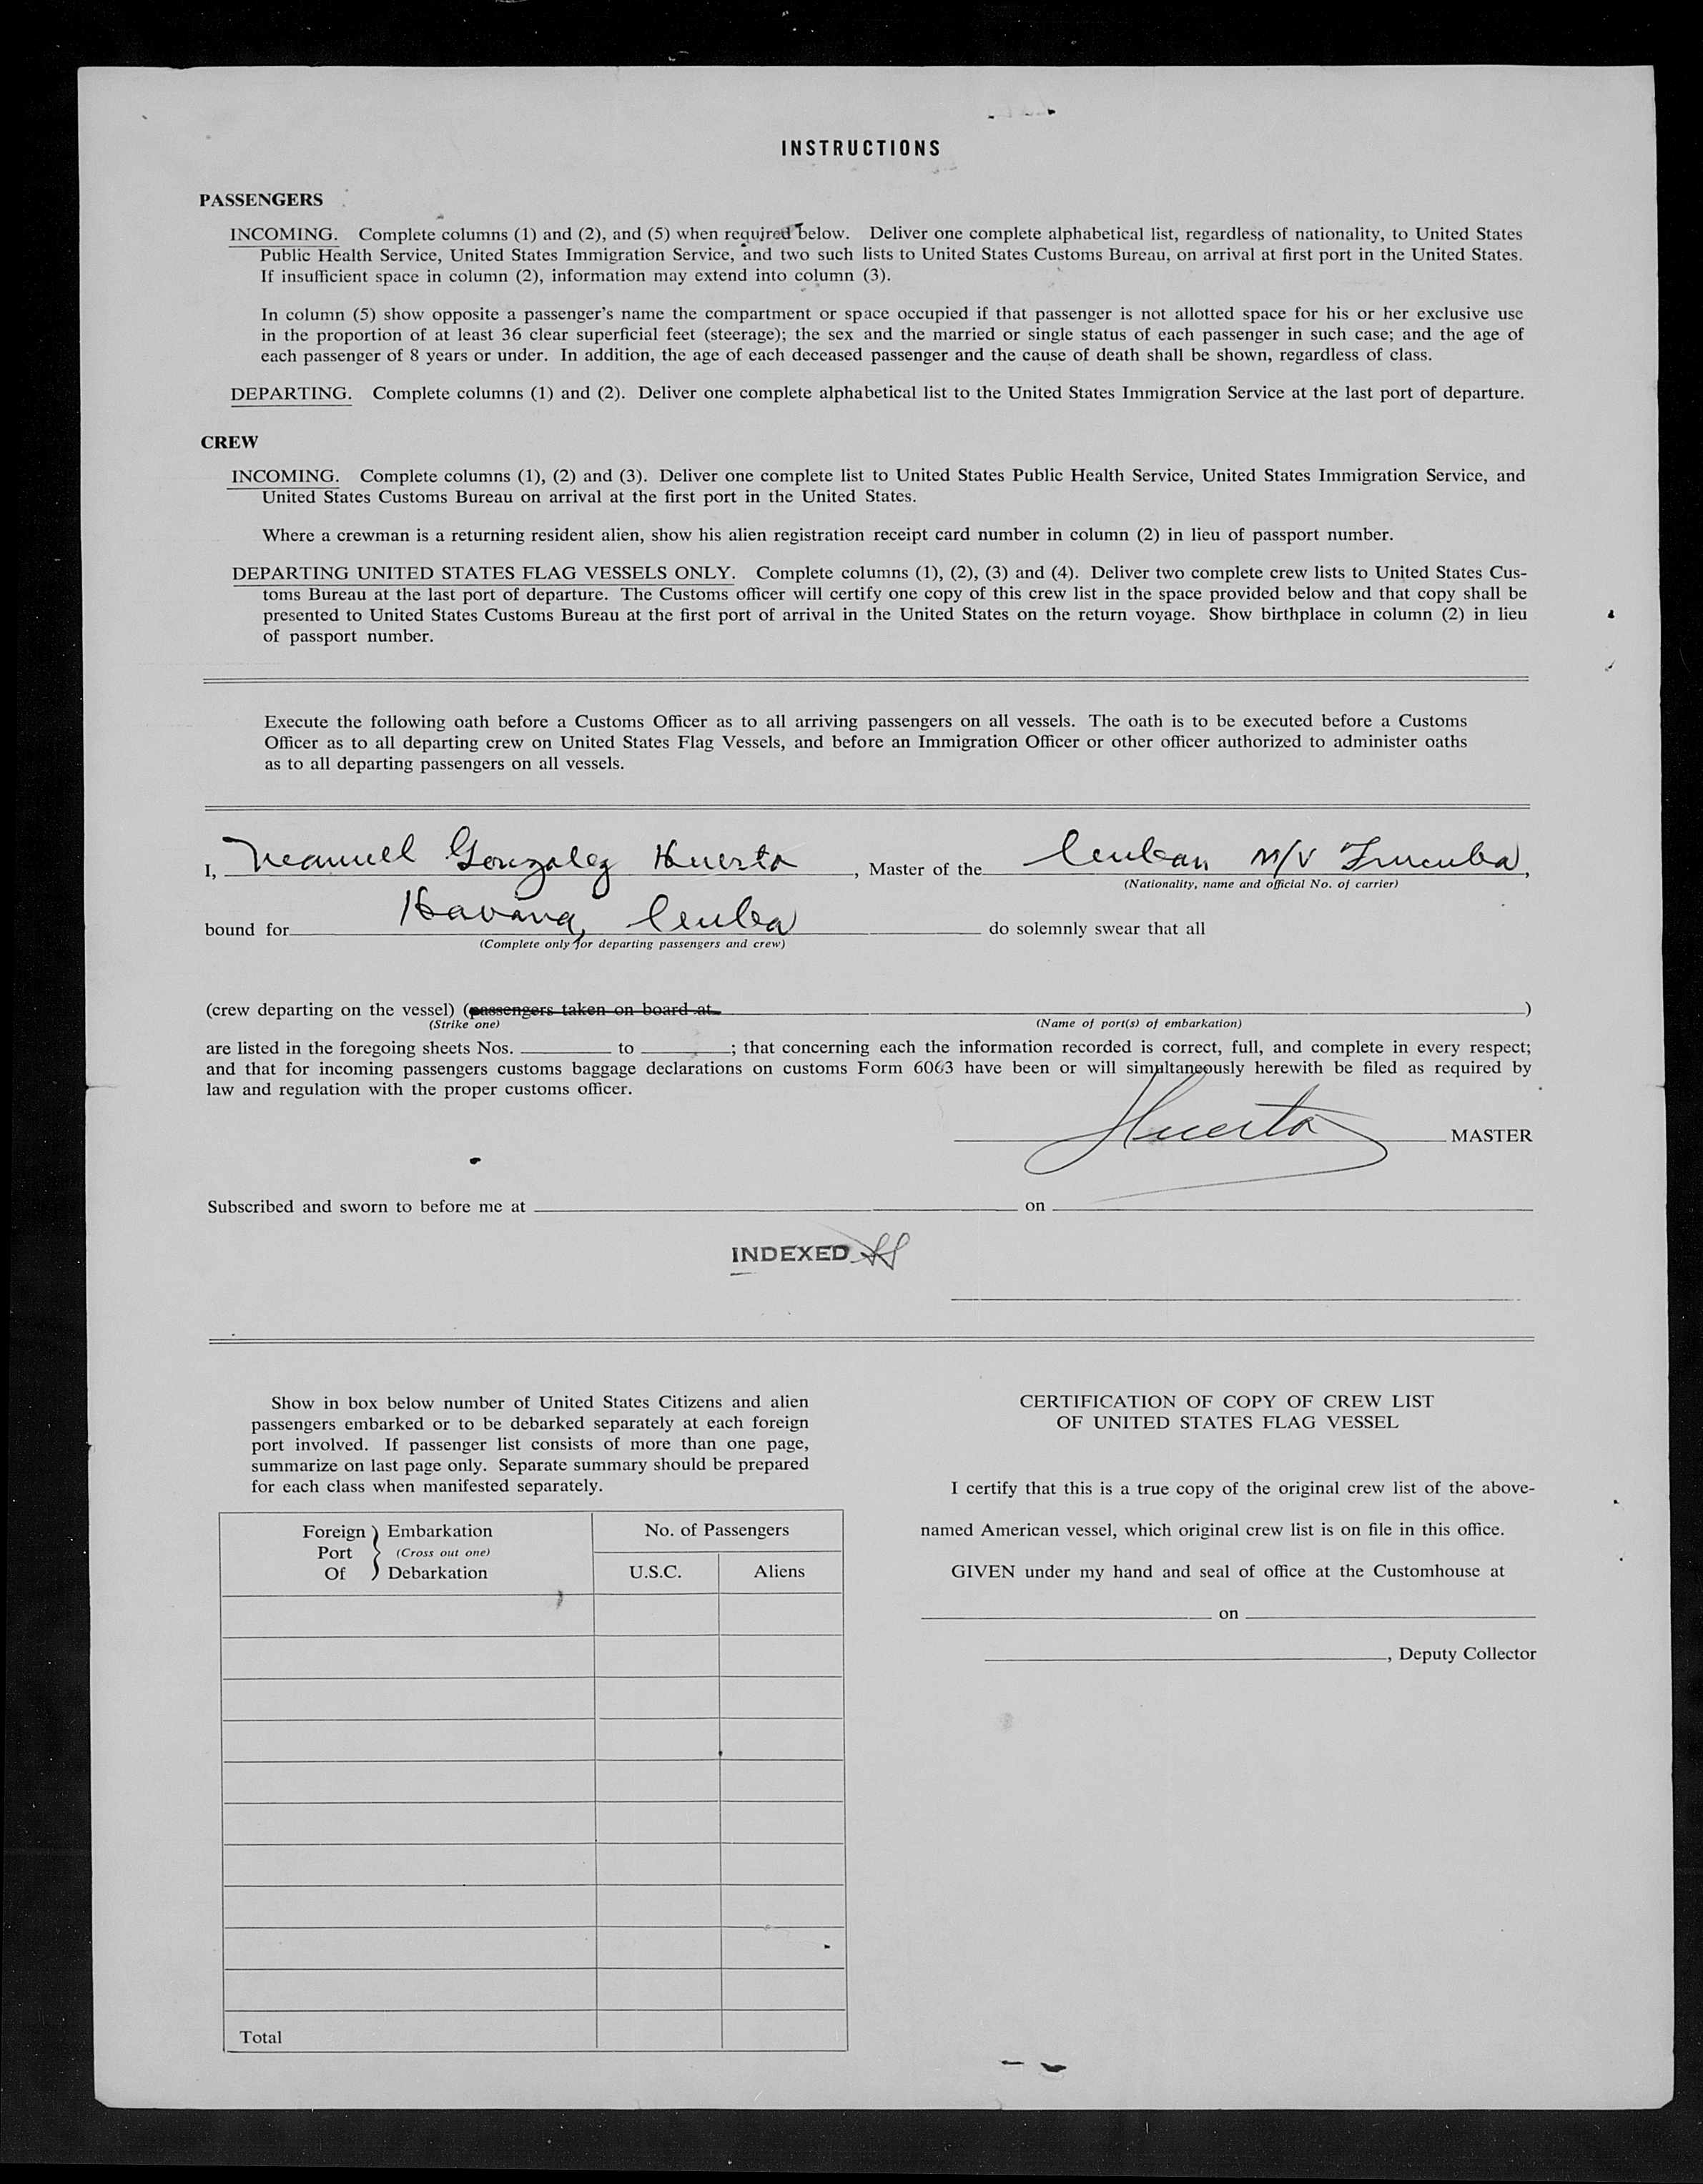 INSTRUCTIONS
PASSENGERS
INCOMING. Complete columns (1) and (2), and (5) when required below. Deliver one complete alphabetical list, regardless of nationality, to United States
Public Health Service, United States Immigration Service, and two such lists to United States Customs Bureau, on arrival at first port in the United States.
If insufficient space in column (2), information may extend into column (3).
In column (5) show opposite a passenger's name the compartment or space occupied if that passenger is not allotted space for his or her exclusive use
in the proportion of at least 36 clear superficial feet (steerage); the sex and the married or single status of each passenger in such case; and the age of
each passenger of 8 years or under. In addition, the age of each deceased passenger and the cause of death shall be shown, regardless of class.
DEPARTING. Complete columns (1) and (2). Deliver one complete alphabetical list to the United States Immigration Service at the last port of departure.
CREW
INCOMING. Complete columns (1), (2) and (3). Deliver one complete list to United States Public Health Service, United States Immigration Service, and
United States Customs Bureau on arrival at the first port in the United States.
Where a crewman is a returning resident alien, show his alien registration receipt card number in column (2) in lieu of passport number.
DEPARTING UNITED STATES FLAG VESSELS ONLY. Complete columns (1), (2), (3) and (4). Deliver two complete crew lists to United States Cus-
toms Bureau at the last port of departure. The Customs officer will certify one copy of this crew list in the space provided below and that copy shall be
presented to United States Customs Bureau at the first port of arrival in the United States on the return voyage. Show birthplace in column (2) in lieu
of passport number.
Execute the following oath before a Customs Officer as to all arriving passengers on all vessels. The oath is to be executed before a Customs
Officer as to all departing crew on United States Flag Vessels, and before an Immigration Officer or other officer authorized to administer oaths
as to all departing passengers on all vessels.
I, Manuel Gonzalez Huerta, Master of the Cuban M/V
(Nationality, name and official No. of carrier)
bound for Havana, Cuba do solemnly swear that all
(Complete only for departing passengers and crew)
(crew departing on the vessel) (passengers taken on board at )
(Strike one) (Name of port(s) of embarkation)
are listed in the foregoing sheets Nos. to ; that concerning each the information recorded is correct, full, and complete in every respect;
and that for incoming passengers customs baggage declarations on customs Form 6063 have been or will simultaneously herewith be filed as required by
law and regulation with the proper customs officer.
Huerta MASTER
Subscribed and sworn to before me at on
INDEXED
Show in box below number of United States Citizens and alien
passengers embarked or to be debarked separately at each foreign
port involved. If passenger list consists of more than one page,
summarize on last page only. Separate summary should be prepared
for each class when manifested separately.
Foreign Embarkation No. of Passengers
Port (Cross out one)
Of Debarkation U.S.C. Aliens
Total
CERTIFICATION OF COPY OF CREW LIST
OF UNITED STATES FLAG VESSEL
I certify that this is a true copy of the original crew list of the above-
named American vessel, which original crew list is on file in this office.
GIVEN under my hand and seal of office at the Customhouse at
on
, Deputy Collector